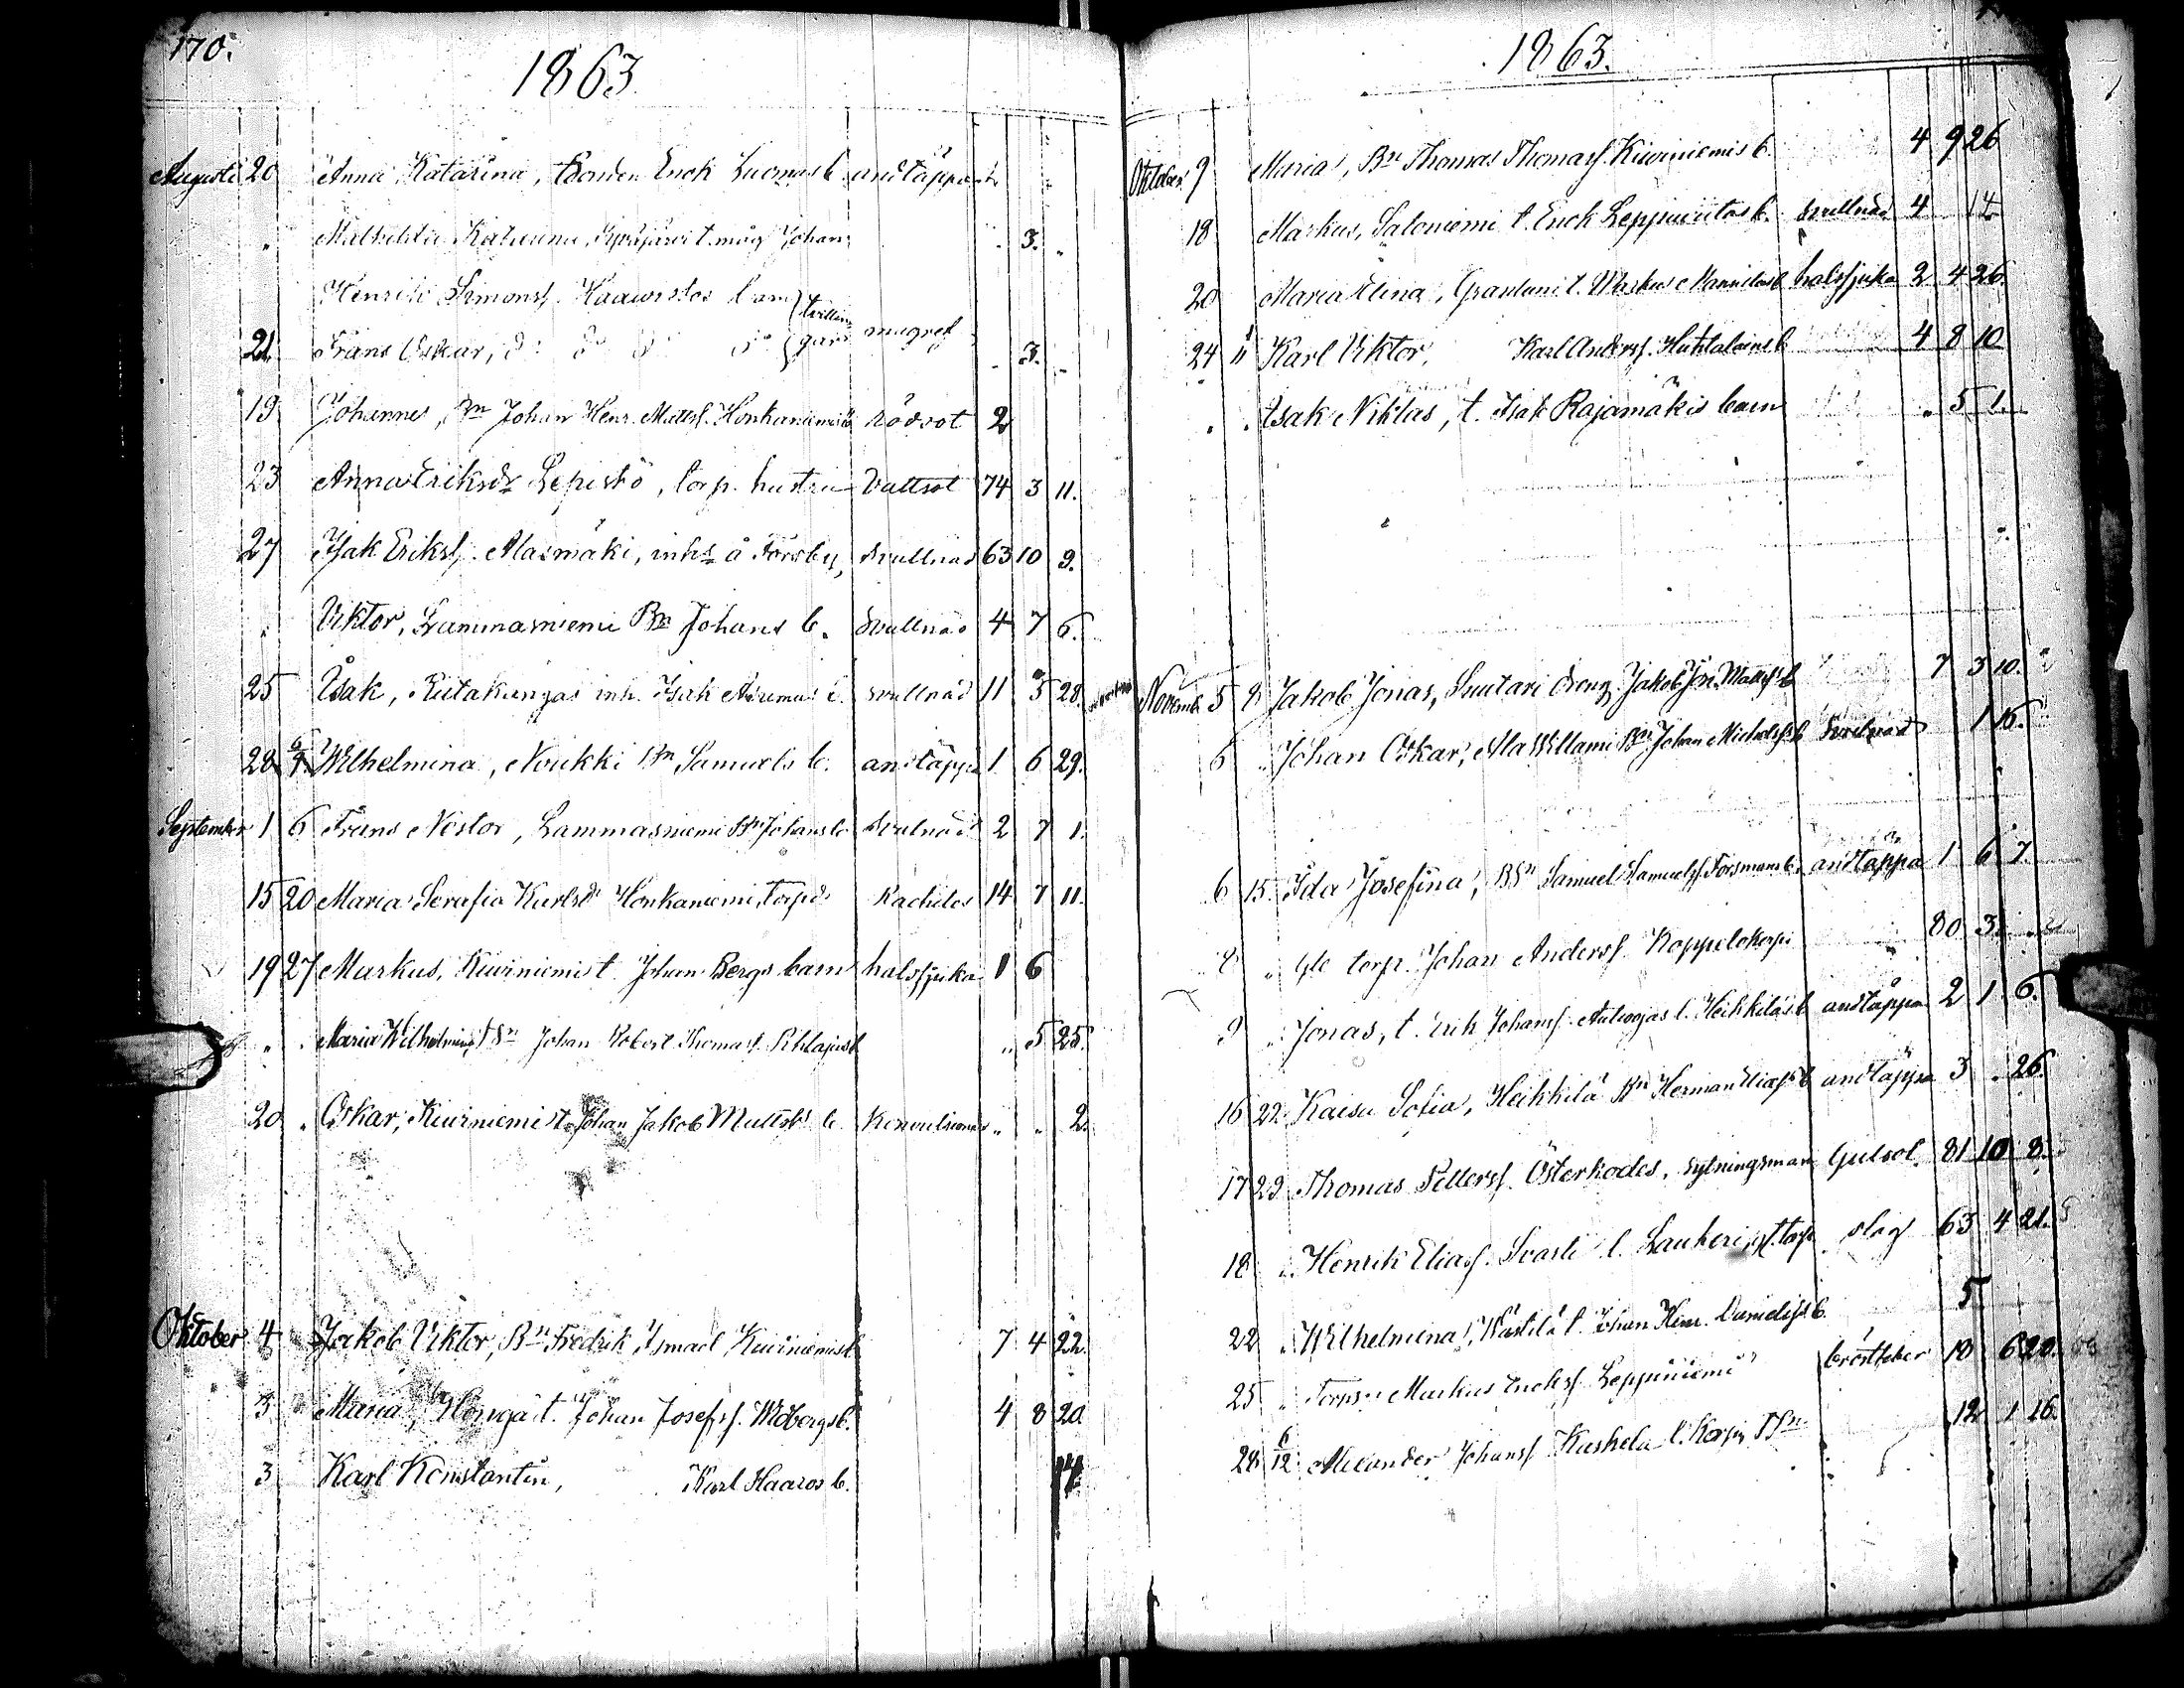 170.
1863
Augusti 20 Anna Katarina, Bonden Enok Luomas b. andtäppa
" Mathilda Katarina, t. måg Johan 3. "
Henrik Simonss. barn
21 Frans Oskar, do do do do tvillingar magref 3. "
19 Johannes, Bn Johan Henr. Mattss. Honkaniemis b rödsot 2
23 Anna Eriksdr Lepistö, torp. hustru Vattsot 74 3 11.
27 Isak Erikss. Alasmäki, inhs å Forsby, Svullnad 63 10 9.
" Viktor, Lammasniemi Bn Johans b. Svullnad 4 7 6.
25 Isak, inh. Isak b. svullnad 11 5 28.
28 Wilhelmina, Noukki Bn Samuels b. andtäppa 1 6 29.
September 1 6 Frans Nestor, Lammasniemi Bn Johans b Svulnad 2 7 1.
15 20 Maria Serafia Karlsdr Honkaniemi, Torpd Rachitis 14 7 11.
19 27 Markus, Kiviniemis t. Johan Bergs barn halssjuka 1 6
" " Maria Wilhelmina, Bn Johan Robert Thomass. b " 5 25.
20 " Oskar, Kiviniemis t. Johan Jakob Mattss b. Konvulsioner " " 2.
Oktober 4 Jakob Viktor, Bn Fredrik Ismael Kiviniemis b 7 4 22.
3 Maria, Honga t. Johan Josefss. Widbergs b. 4 8 20.
3 Karl Konstantin, Karl Haaros b. 14.
1863.
Oktober 9 Maria, Bn Thomas Thomass. Kiviniemis b. 4 9 26
18 Markus, Saloniemi t. Enok b. svullnad 4 14
20 Maria Elina, t. Markus b halssjuka 2 4 26.
24 1/11 Karl Viktor, Karl Anderss. Huhtalains b 4 8 10
" " Isak Niklas, t. Isak Rajamäkis barn " 5 1.
Novemb. 5 8 Jakob Jonas, Suutari dreng Jakob Mattss b 7 3 10.
6 " Johan Oskar, Ala Willami Bn Johan Michelss b Svulnad 1 15.
6 15. Ida Josefina, Bn Samuel Samuelss Forsmans b. andtäppa 1 6 7.
8 " Gle torp. Johan Anderss. Koppelokorpi 80 3.
9 " Jonas, t. Erik Johanss. l. Heikkiläs b andtäppa 2 1 6.
16 22. Kaisa Sofia, Heikkilä Bn Herman Eliass b andtäppa 3 " 26.
17 29. Thomas Petterss. Österkodes, sytningsman Gulsot. 81 10 8.
18 " Henrik Eliass. l. Laukeri, gl. torp slag 63 4 21.
22 " Wilhelmina, Wästilä t. Johan Henr. Danielss b. 5
25 " Torps. Markus Enokss. Leppiniemi bröstfeber 18 6 20.
28 6/12 Alexander Johanss Kuskela l. Korpi Bn 12 1 16.